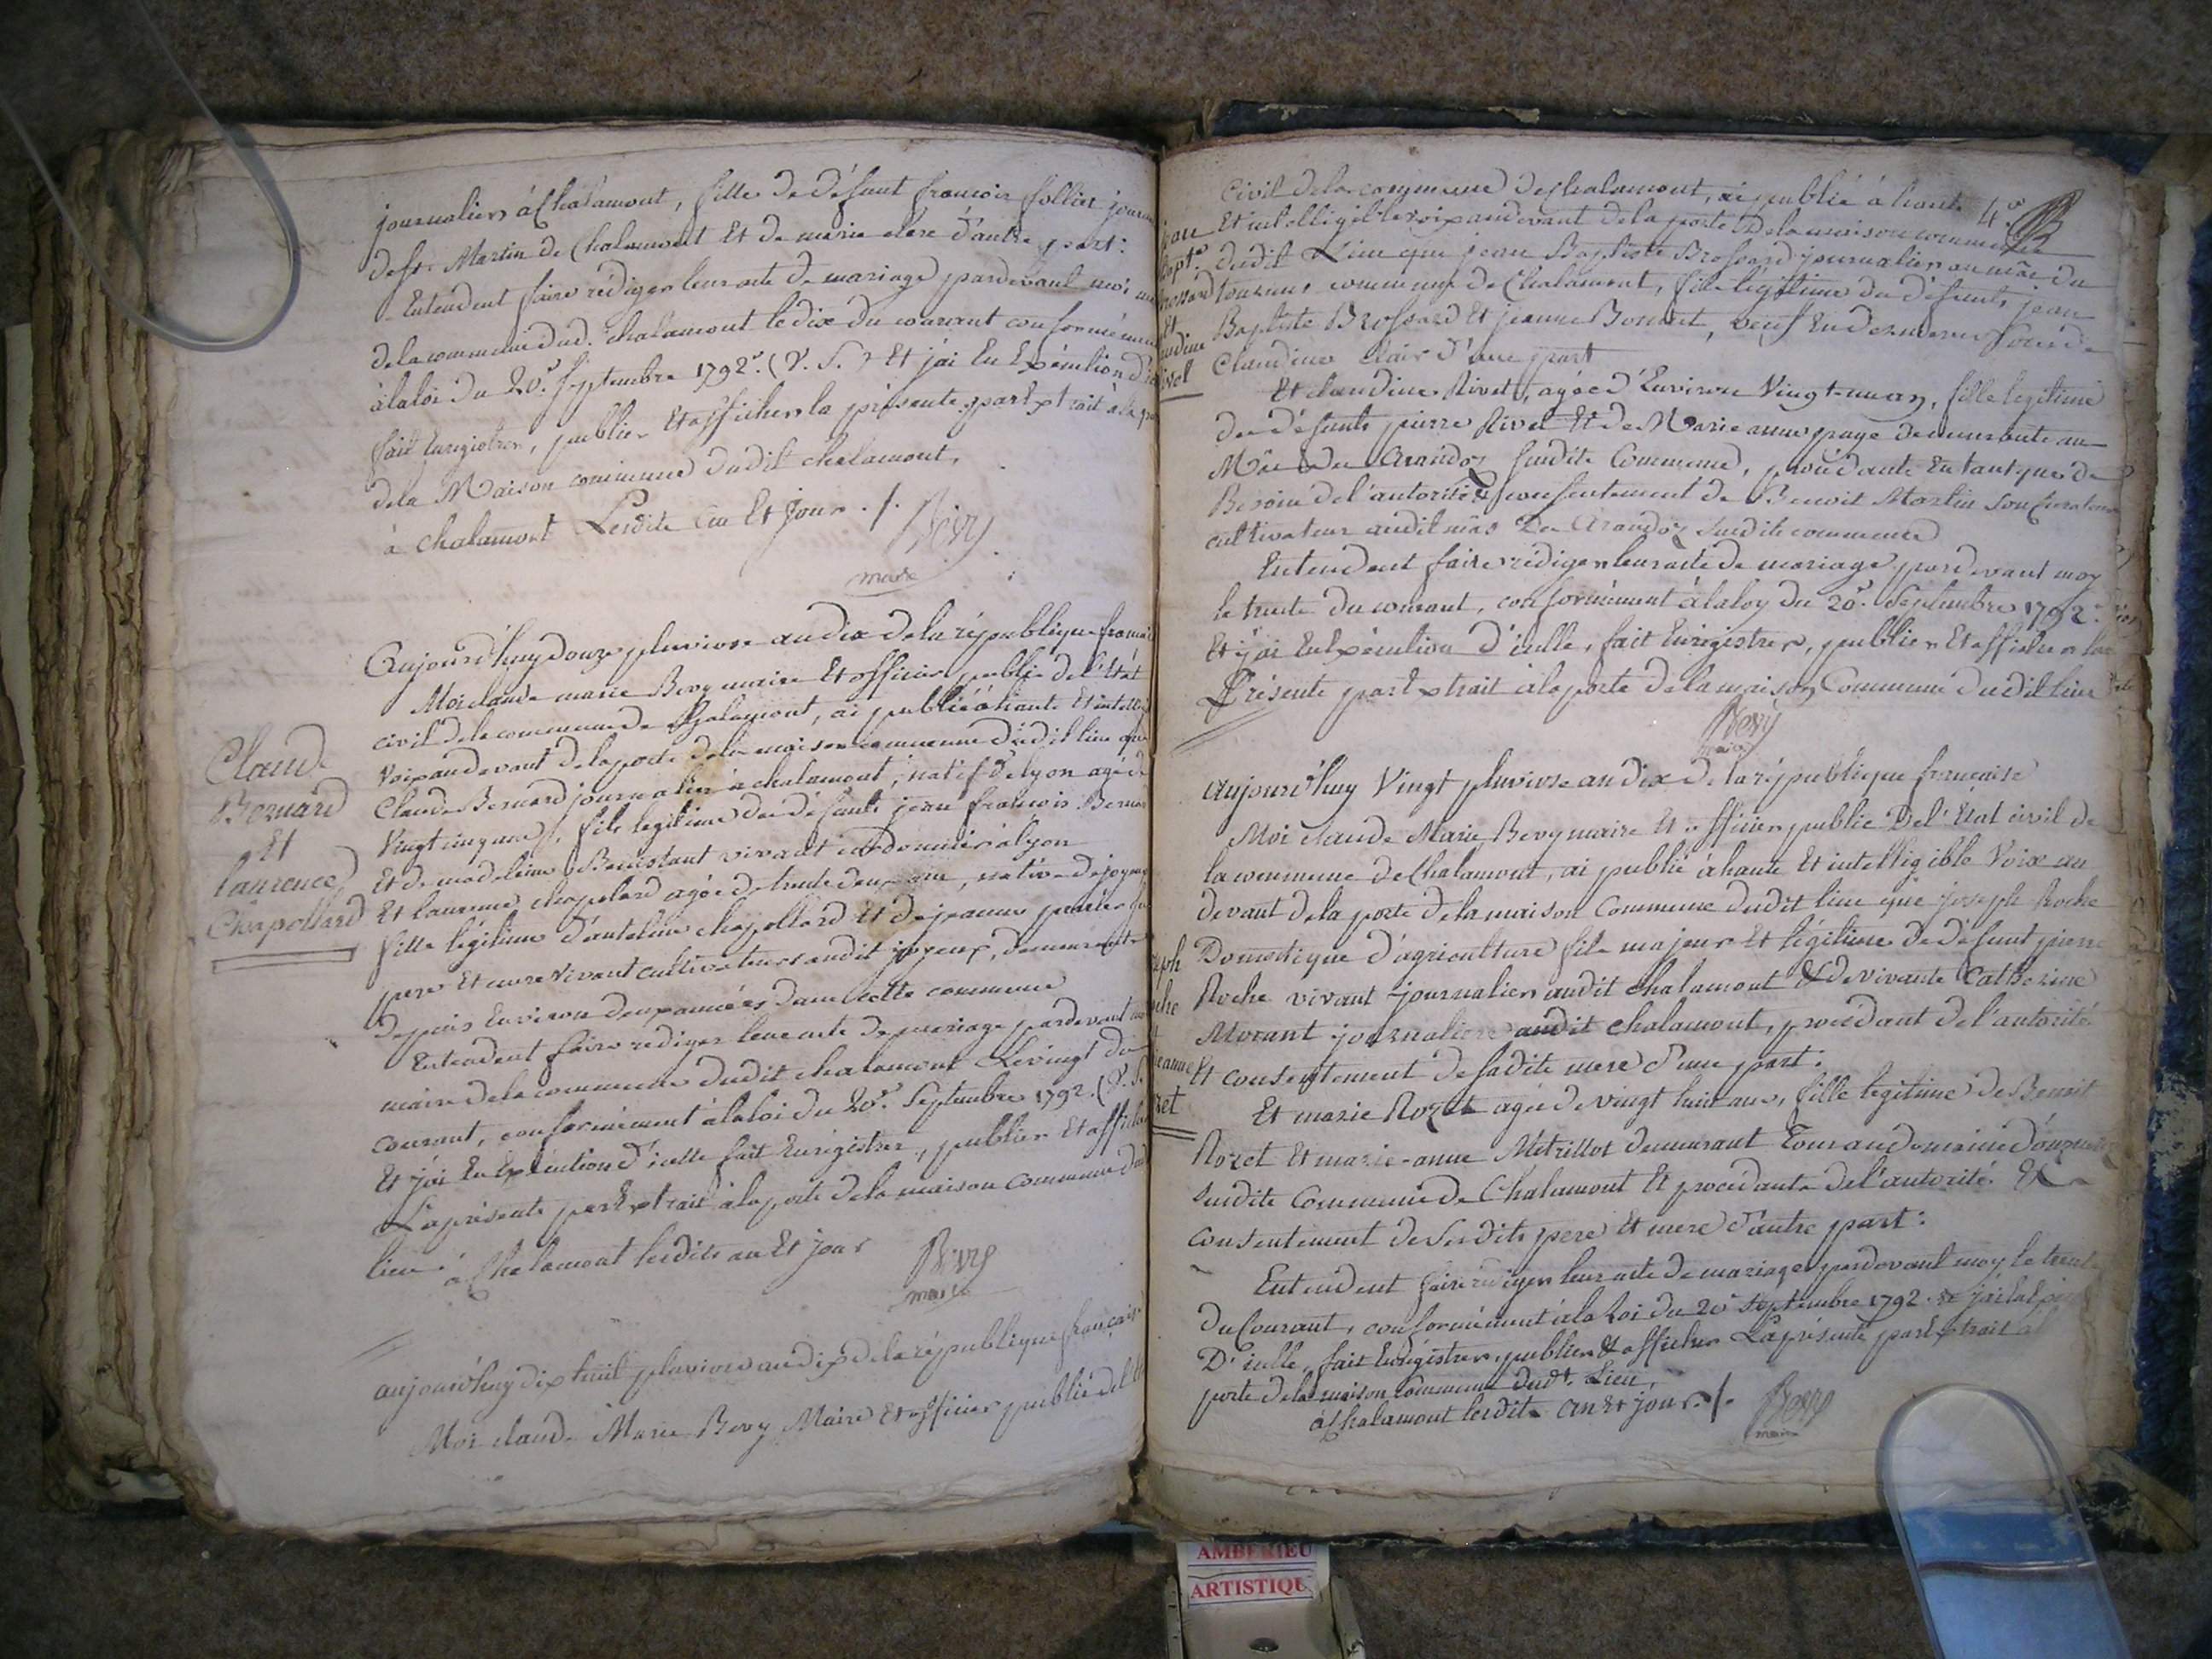 journaliers à Chalamont, fille de défunt francois follier
de St. Martin de Chalamont Et de marie clere d'autre part:
Entendent faire rédiger leur acte de mariage pardevant moi
de la commune dud. chalamont le dix du courant conformément
à la loi du 20e. Septembre 1792. (V. S.) Et j'ai En Exécution
fait Enregistrer, publier Et afficher la présente par Extrait à la
de la Maison commune dudit chalamont,
à chalamont Lesdits an Et Jour ./. Bevy
maire
Claude
Bernard
Et
laurence
Chapollard
Aujourd'huy douze pluviose an dix de la république
Moi claude marie Bevy maire Et officier public de l'Etat
civil de la commune de Chalamont, ai publié à haute Et
voix au devant de la porte de la maison commune dudit lieu que
Claude Bernard journalier à chalamont, natif de lyon agé de
Vingt cinq ans, fils legitime de défunts jean francois
Et de madeleine vivant à lyon
Et laurence chapolard agée de trente deux ans, native de joyeux
fille légitime d'antelme chapollard Et de jeanne
pere Et mere vivant cultivateurs audit joyeux, demeurante
depuis Environ deux années dans cette commune
Entendent faire rediger leur acte de mariage pardevant
maire de la commune dudit chalamont Le vingt du
courant, conformément à la loi du 20e. Septembre 1792. (V. S.
Et j'ai En Exécution d'icelle fait Enregistrer, publier Et
La présente par Extrait à la porte de la maison commune
lieu. à Chalamont lesdits an Et jour Bevy
maire
aujourd'huy dix huit pluviose an dix de la république
Moi claude Marie Bevy Maire Et officier public de
4e
Civil de la commune de Chalamont, ai publié à haute
Et intelligible voix au devant de la porte de la maison commune
dudit Lieu que jean Baptiste Brossard journalier au mâs du
commune de Chalamont, fils légitime de défunts jean
Baptiste Brossard Et jeanne veuf En de
Claudine Clair d'une part
Et claudine Rivet, agée d'Environ Vingt-un ans, fille legitime
de défunts pierre Rivet Et de Marie anne page demeurante au
Mâs du Arandoz susdite Commune, procédante En tant que de
Besoin de l'autorité & consentement de Benoit Martin Son Curateur
cultivateur audit mâs De Arandoz susdite commune
Entendent faire rédiger leur acte de mariage pardevant moy
le trente du courant, conformément à la loy du 20e. Septembre 1792.
Et j'ai En Exécution d'icelle, fait Enregistrer, publier Et afficher la
Présente par Extrait à la porte de la maison Commune dudit lieu
Bevy
maire
Aujourd'huy Vingt pluviose an dix de la république française
Moi claude Marie Bevy maire Et officier public De l'Etat civil de
la commune de Chalamont, ai publié à haute Et intelligible Voix au
devant de la porte de la maison Commune dudit lieu que joseph Roche
Domestique d'agriculture fils majeur Et légitime de défunt pierre
Roche vivant journalier audit chalamont & de vivante Catherine
Morant journaliere audit chalamont, procédant de l'autorité
Et consentement de sadite mere d'une part:
Et marie Rozet agée de vingt huit ans, fille legitime de Benoit
Rozet Et marie-anne Metrillot demeurant Tous au domaine
susdite Commune de Chalamont Et procédante de l'autorité &
consentement de Sesdits pere Et mere d'autre part:
Entendent faire rédiger leur acte de mariage pardevant moy le trente
Du Courant, conformément à la Loi du 20e Septembre 1792.
D'icelle, fait Enregistrer, publier & afficher La présente par Extrait
porte de la maison Commune dudt. Lieu,
à Chalamont lesdits an Et jour ./. Bevy
maire
AMBERIEU
ARTISTIQU